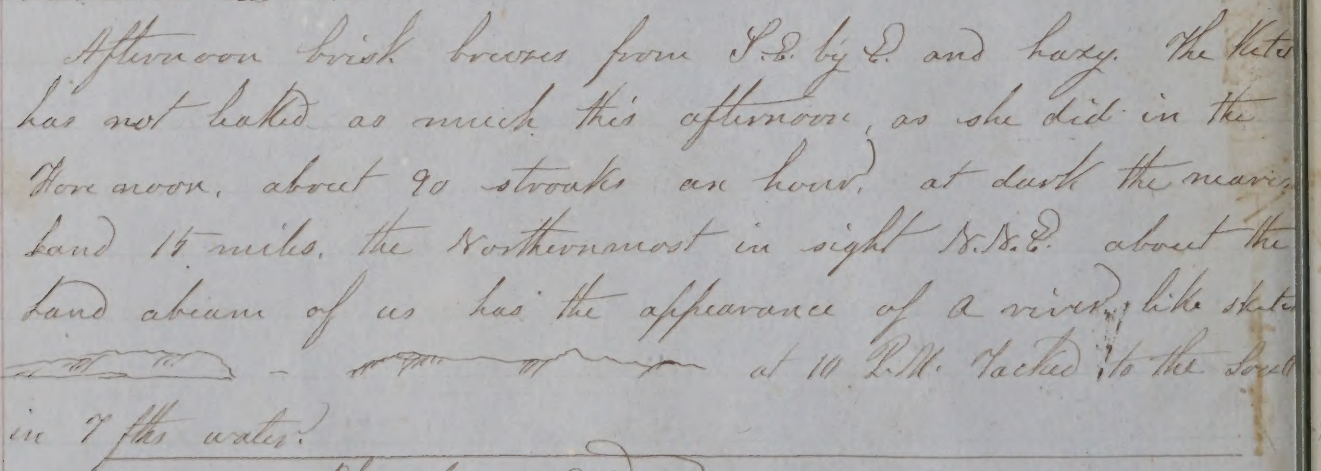 Afternoon brisk breezes from S.E. by E. and hazy. The
has not leaked as much this afternoon, as she did in the
Fore noon, about 90 stroaks an hour, at dark the
Land 15 miles, the Northernmost in sight N.N.E. about the
Land abeam of us has the appearance of a river, like
at 10 P.M. Tacked to the
in 7 fths water.